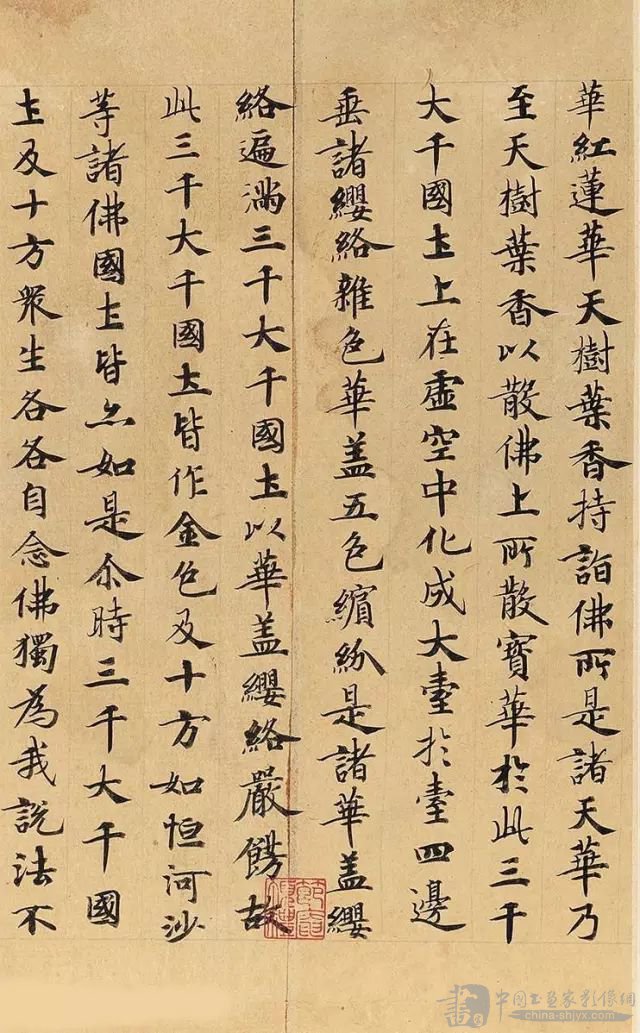 華紅蓮華天樹葉香持詣佛所是諸天華乃
至天樹葉香以散佛上所散寶華於此三千
大千國土上在虛空中化成大臺於臺四邊
垂諸纓絡雜色華盖五色繽紛是諸華盖纓
絡遍滿三千大千國土以華盖纓絡嚴餝故
此三千大千國土皆作金色及十方如恒河沙
等諸佛國土皆亦如是尒時三千大千國
土及十方眾生各各自念佛獨為我說法不
書
中国书画家影像網
china-shjyx.com